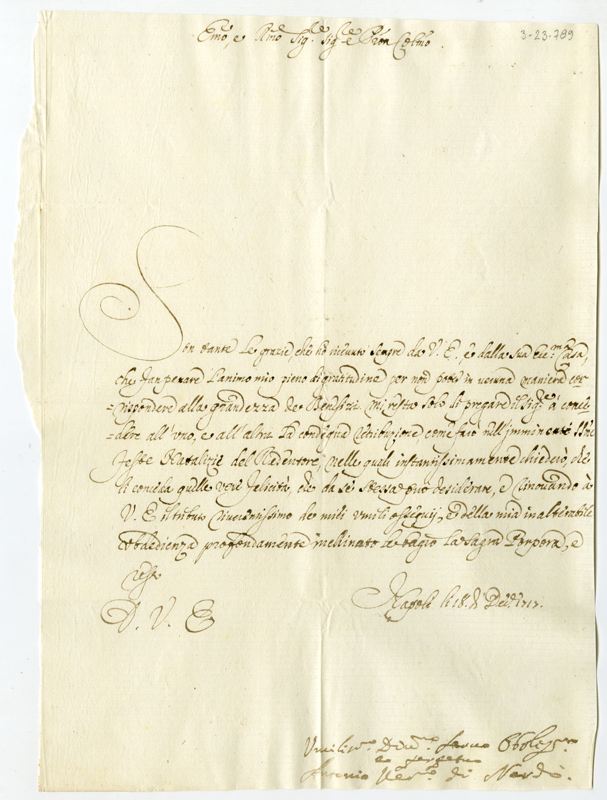 Emo, e Rmo Sigr. Sigr. e Pron Colmo
3-23-789
Son tante le grazie, che hò ricevuto sempre da V. E. e dalla sua Ecc.ma Casa,
che fan penare l'animo mio pieno di gratitudine per non poter in veruna maniera cor-
=rispondere alla grandezza de Benefizi. Mi resta solo di pregare il Sigre à conce-
dere all'uno, e all'altra la condegna retribuzione come farò nell'imminenti SSme
feste Natalizie del Redentore, nelle quali instantissimamente chiederò, che
li conceda quelle vere felicità, che da sè stessa può desiderare, e rinovando à
V. E. il tributo riverentissimo de miei umili ossequij, e della mia inalterabile
obbedienza profondamente inchinato le bagio la Sagra Porpora, e
resto
D. V. E.
Napoli li 18. di Decre 1717.
Umiliss.mo Devmo Servo Obbligmo
Vesc.o di Nardò